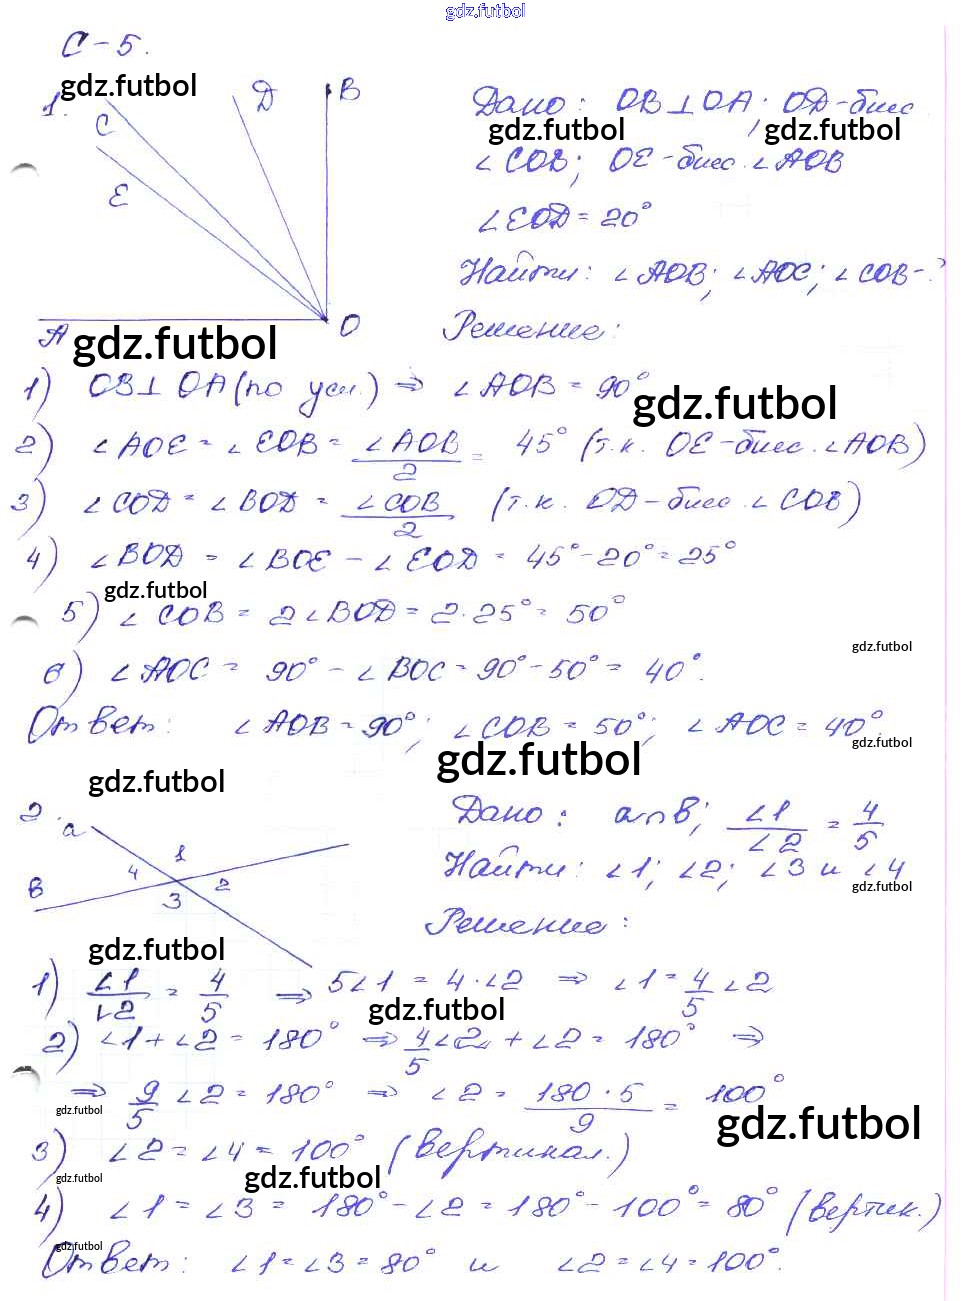 gdz.futbol
С-5.
gdz.futbol
1.
C
D
B
E
A
O
gdz.futbol
Дано: OB⊥OA; OD-бисс
gdz.futbol gdz.futbol
∠COB; OE-бисс. ∠AOB
∠EOD = 20°
Найти: ∠AOB; ∠AOC; ∠COB-?
Решение:
1) OB⊥OA (по усл.) ⇒ ∠AOB = 90°
gdz.futbol
2) ∠AOE = ∠EOB = ∠AOB/2 = 45° (т.к. OE-бисс. ∠AOB)
3) ∠COD = ∠BOD = ∠COB/2 (т.к. OD-бисс. ∠COB)
4) ∠BOD = ∠BOE - ∠EOD = 45°-20°=25°
gdz.futbol
5) ∠COB = 2∠BOD = 2·25° = 50°
gdz.futbol
6) ∠AOC = 90° - ∠BOC = 90°-50° = 40°.
Ответ: ∠AOB = 90°; ∠COB = 50°; ∠AOC = 40°.
gdz.futbol
gdz.futbol
gdz.futbol
2.
a
в
1
4
2
3
Дано: a∩в; ∠1/∠2 = 4/5
Найти: ∠1; ∠2; ∠3 и ∠4
gdz.futbol
Решение:
gdz.futbol
1) ∠1/∠2 = 4/5 ⇒ 5∠1 = 4·∠2 ⇒ ∠1 = 4/5 ∠2
gdz.futbol
2) ∠1+∠2 = 180° ⇒ 4/5∠2 + ∠2 = 180° ⇒
⇒ 9/5 ∠2 = 180° ⇒ ∠2 = 180·5/9 = 100°
gdz.futbol
gdz.futbol
3) ∠2 = ∠4 = 100° (вертикал.)
gdz.futbol
gdz.futbol
4) ∠1 = ∠3 = 180°-∠2 = 180°-100° = 80° (вертик.)
gdz.futbol
Ответ: ∠1 = ∠3 = 80° и ∠2 = ∠4 = 100°.